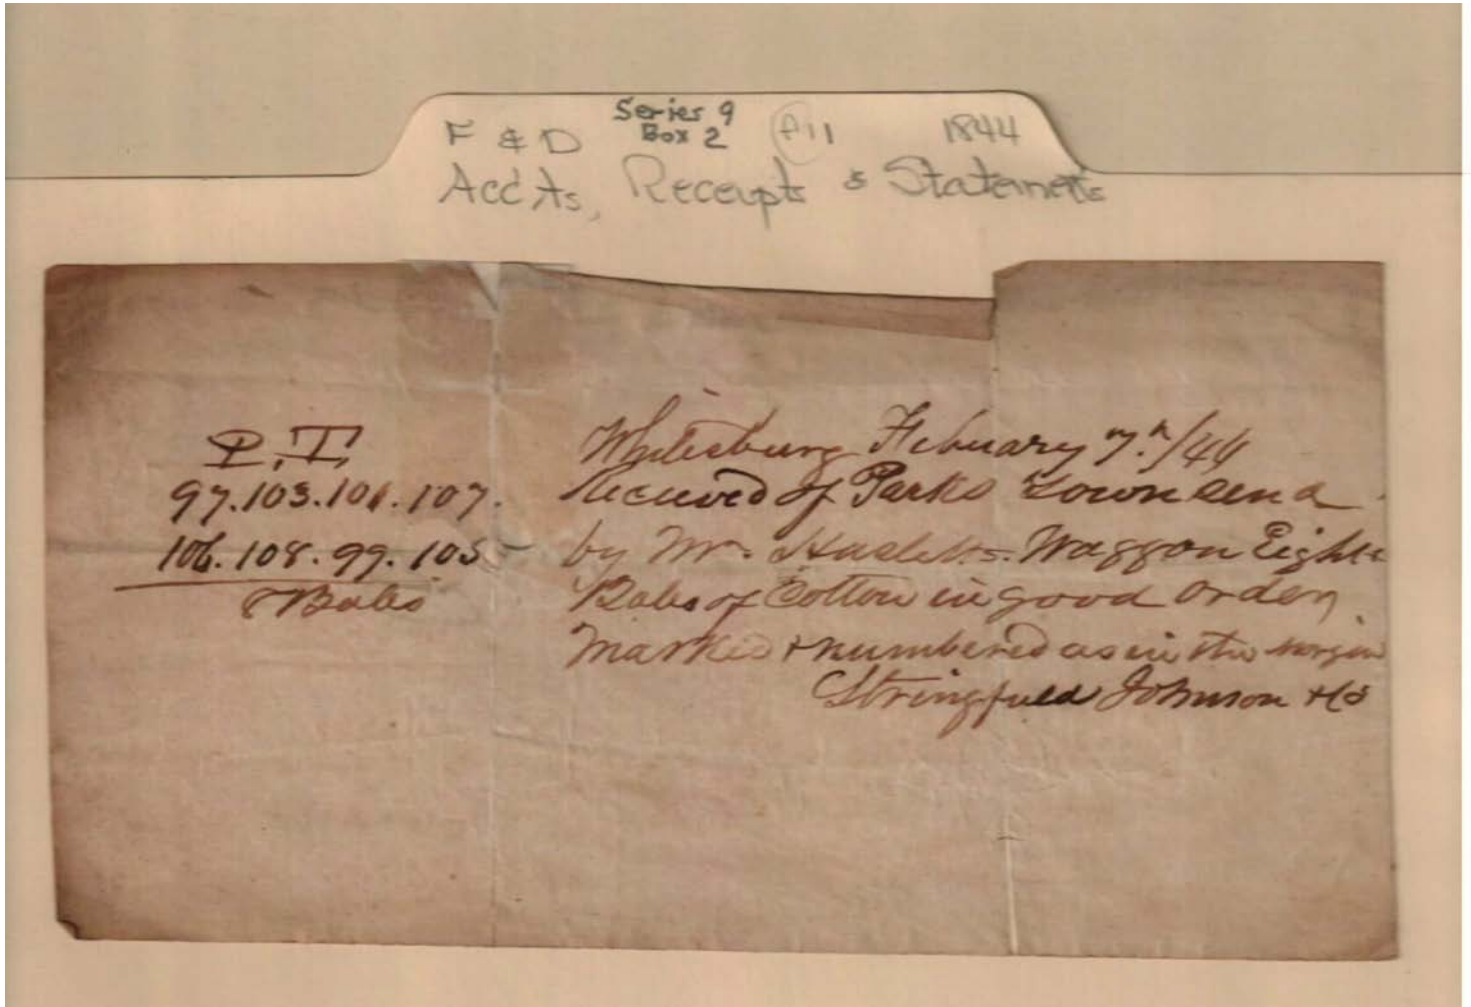 Series 9
F & D Box 2 1844
Acc'ts, Receipts & Statements
P,T,
97.103.101.107.
106.108.99.105
8 Bales
Whitesburg Febuary 7th/44
Received of Parks Townsend
by Mr. Waggon Eight
Bales of Cotton in good order,
marked & numbered as in the margin
Stringfield Johnson & Co